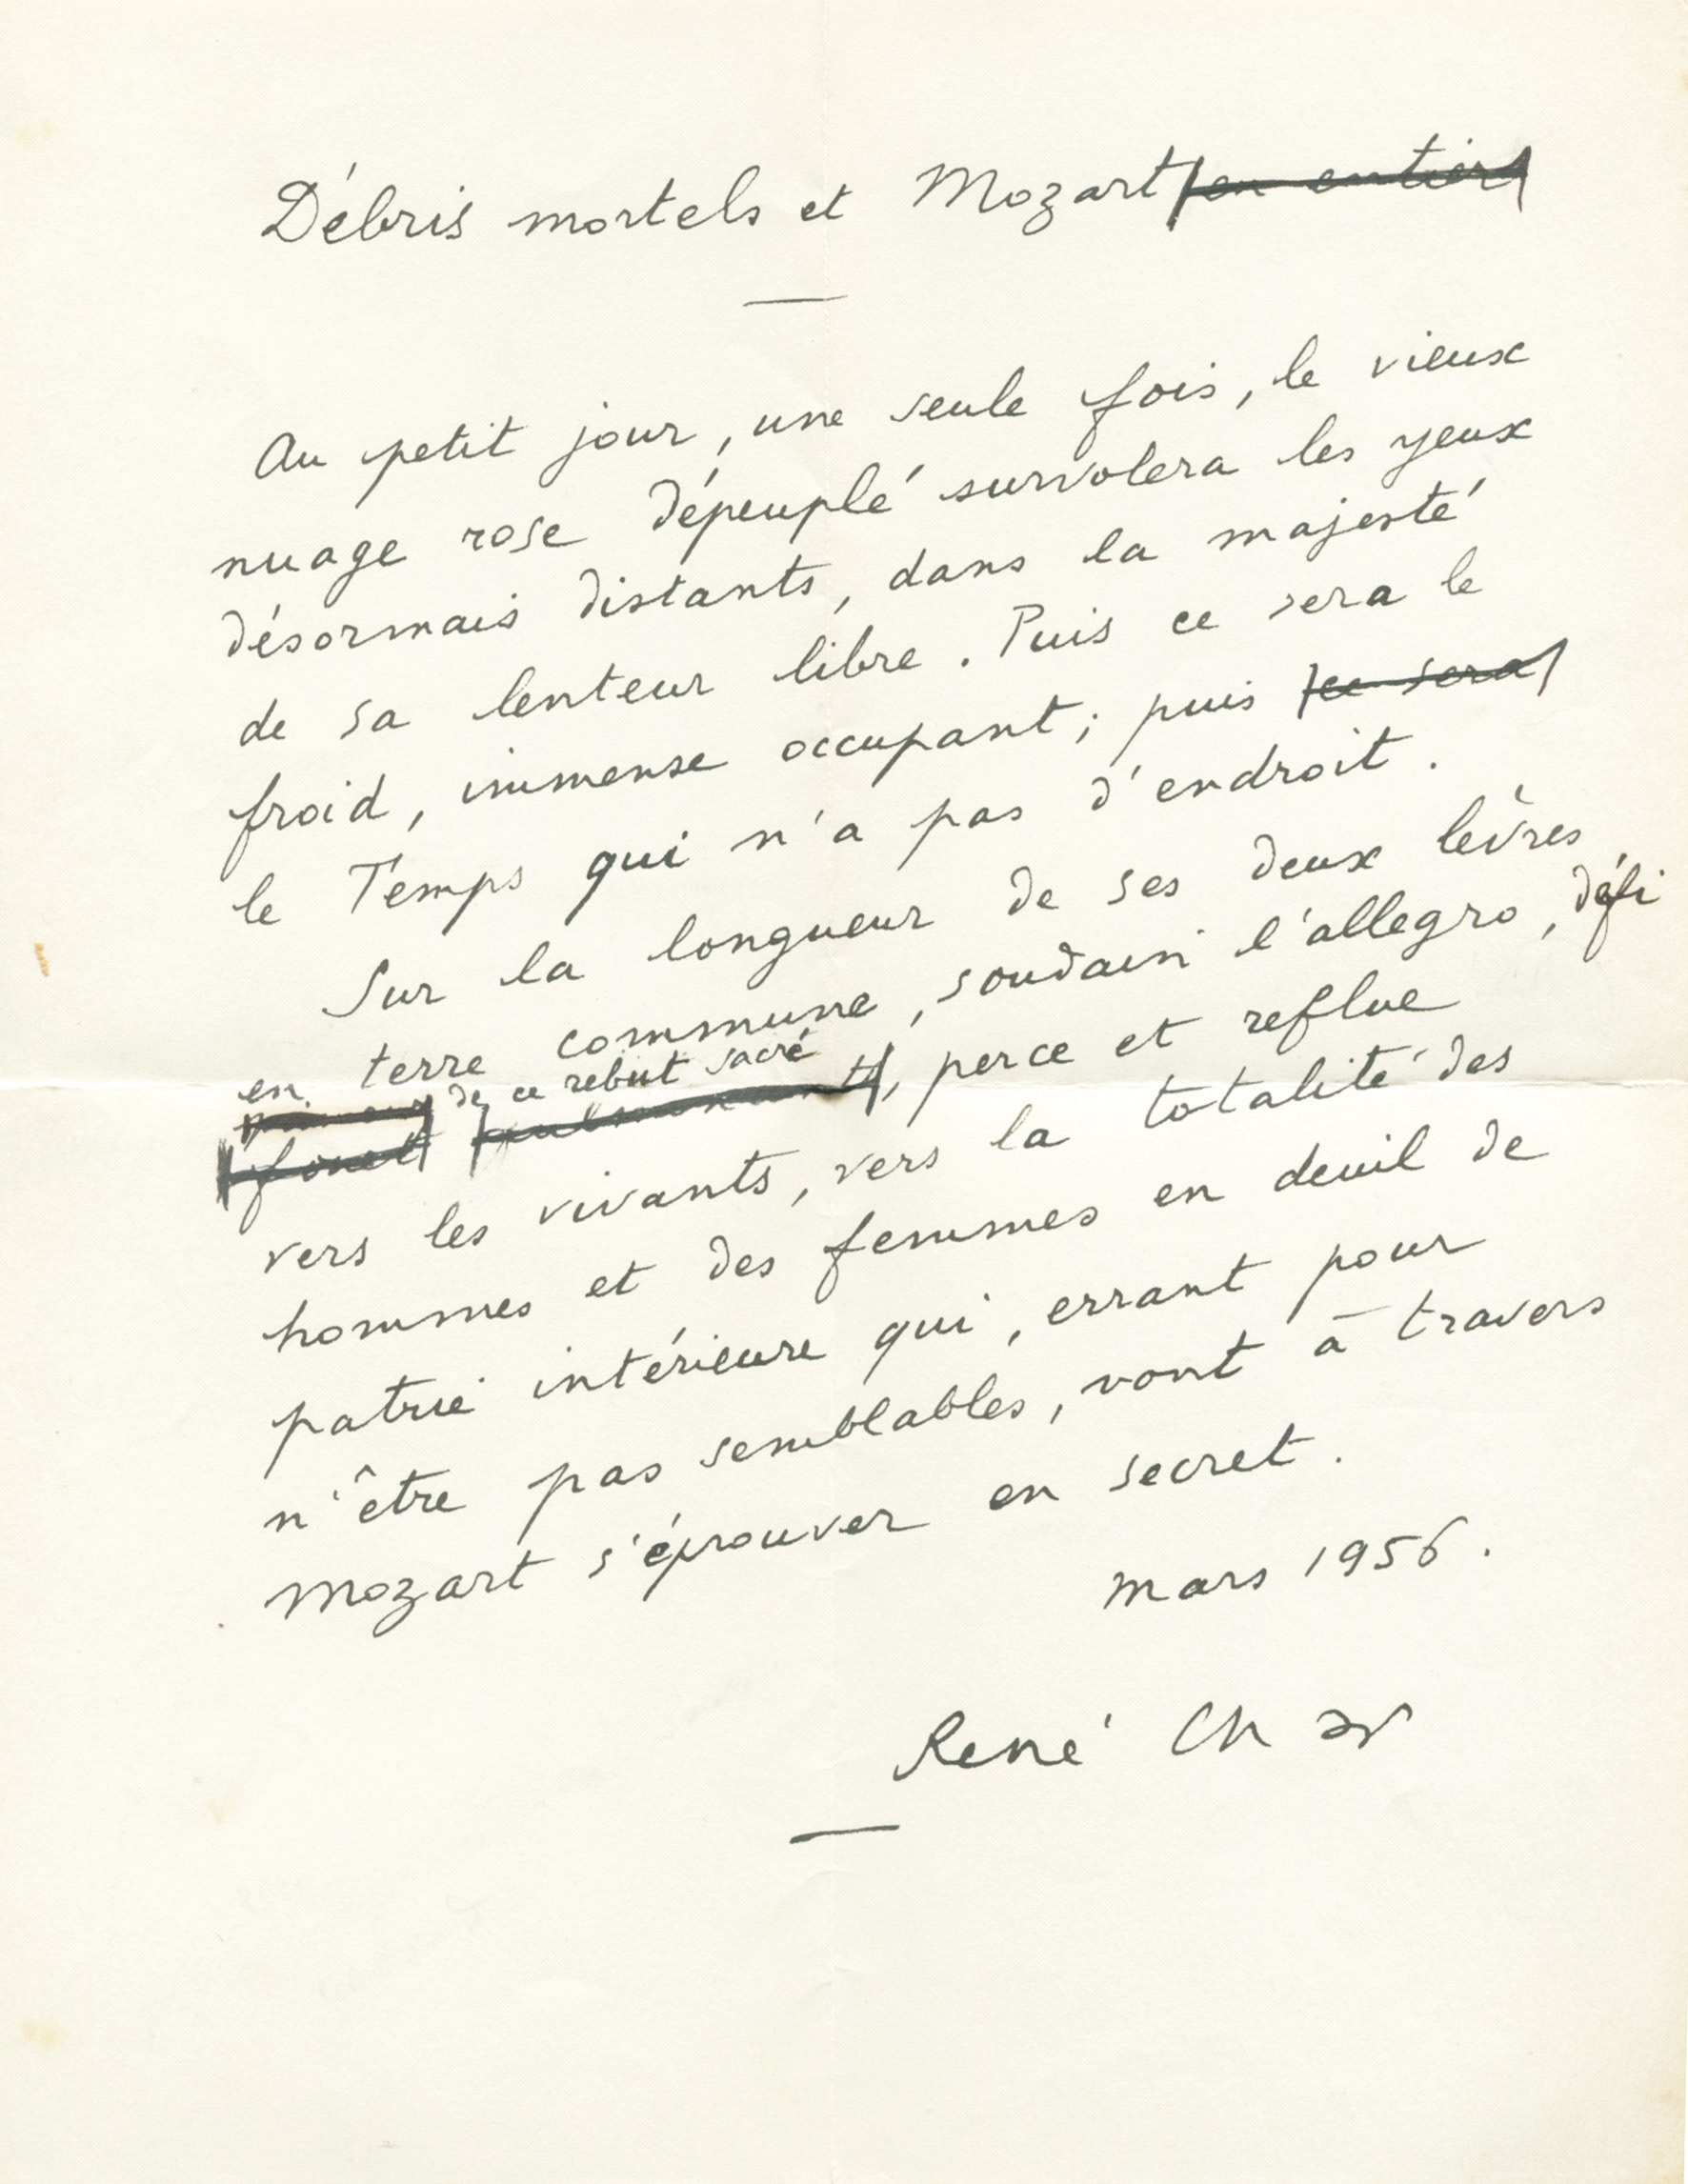 Débris mortels et Mozart en entier
Au petit jour, une seule fois, le vieux
nuage rose dépeuplé survolera les yeux
désormais distants, dans la majesté
de sa lenteur libre. Puis ce sera le
froid, immense occupant ; puis ce sera
le Temps qui n'a pas d'endroit.
Sur la longueur de ses deux lèvres
en terre commune, soudain l'allegro, défi
de ce rebut sacré
, perce et reflue
vers les vivants, vers la totalité des
hommes et des femmes en deuil de
patrie intérieure qui, errant pour
n'être pas semblables, vont à travers
Mozart s'éprouver en secret.
Mars 1956.
René Char